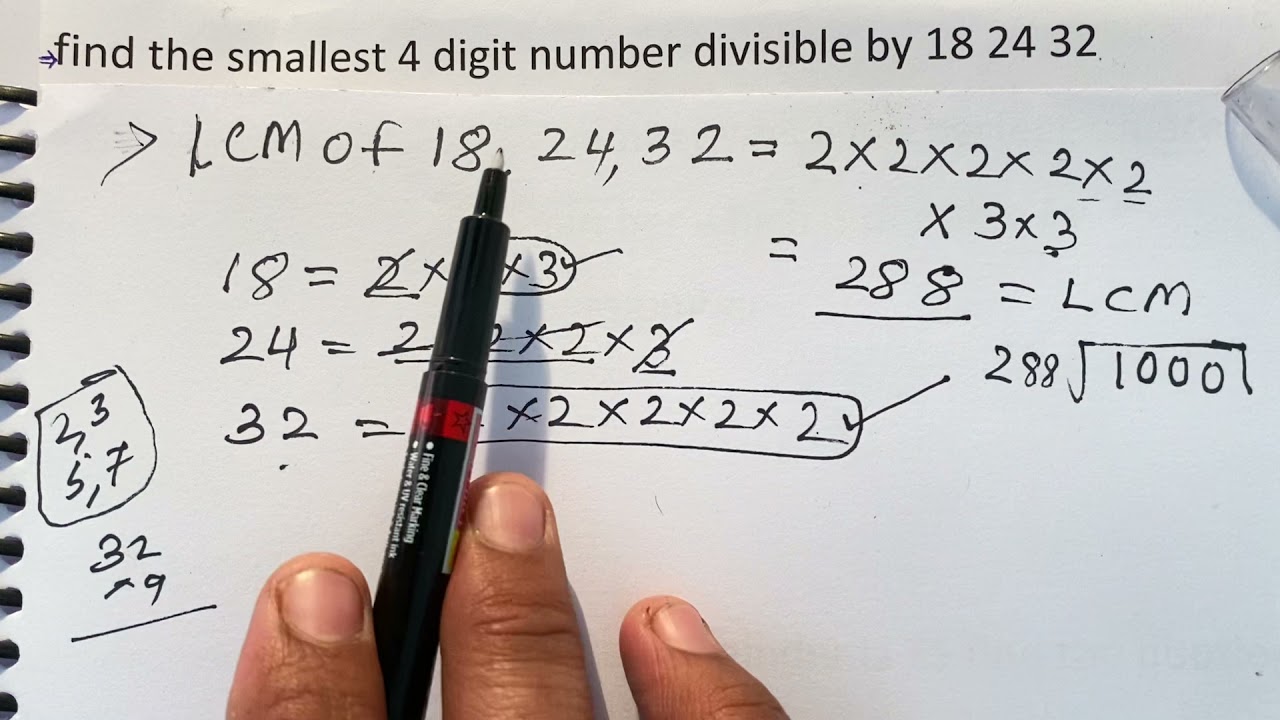 ⇒find the smallest 4 digit number divisible by 18 24 32
> LCM of 18, 24, 32 = 2×2×2×2×2
× 3×3
= 288 = LCM
18 = 2× ×3
24 = 2 2×2×3
32 = ×2×2×2×2
288 1000
2,3
5,7
32
×9
Fine & Clear Marking
Water & UV resistant ink